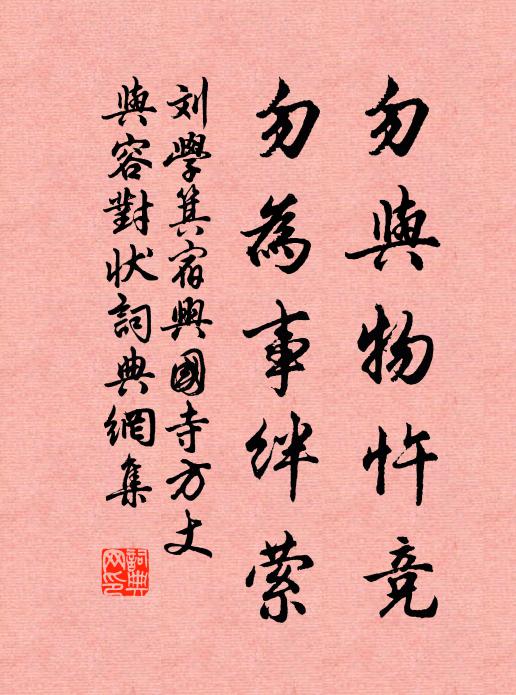 勿與物忤竞
勿為事絆萦
刘學箕宿興國寺方丈
與容對狀詞典網集
詞典网印